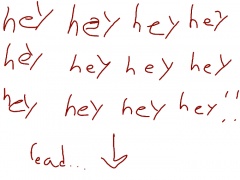 hey hey hey hey
hey hey hey hey
hey hey hey hey!!
read...